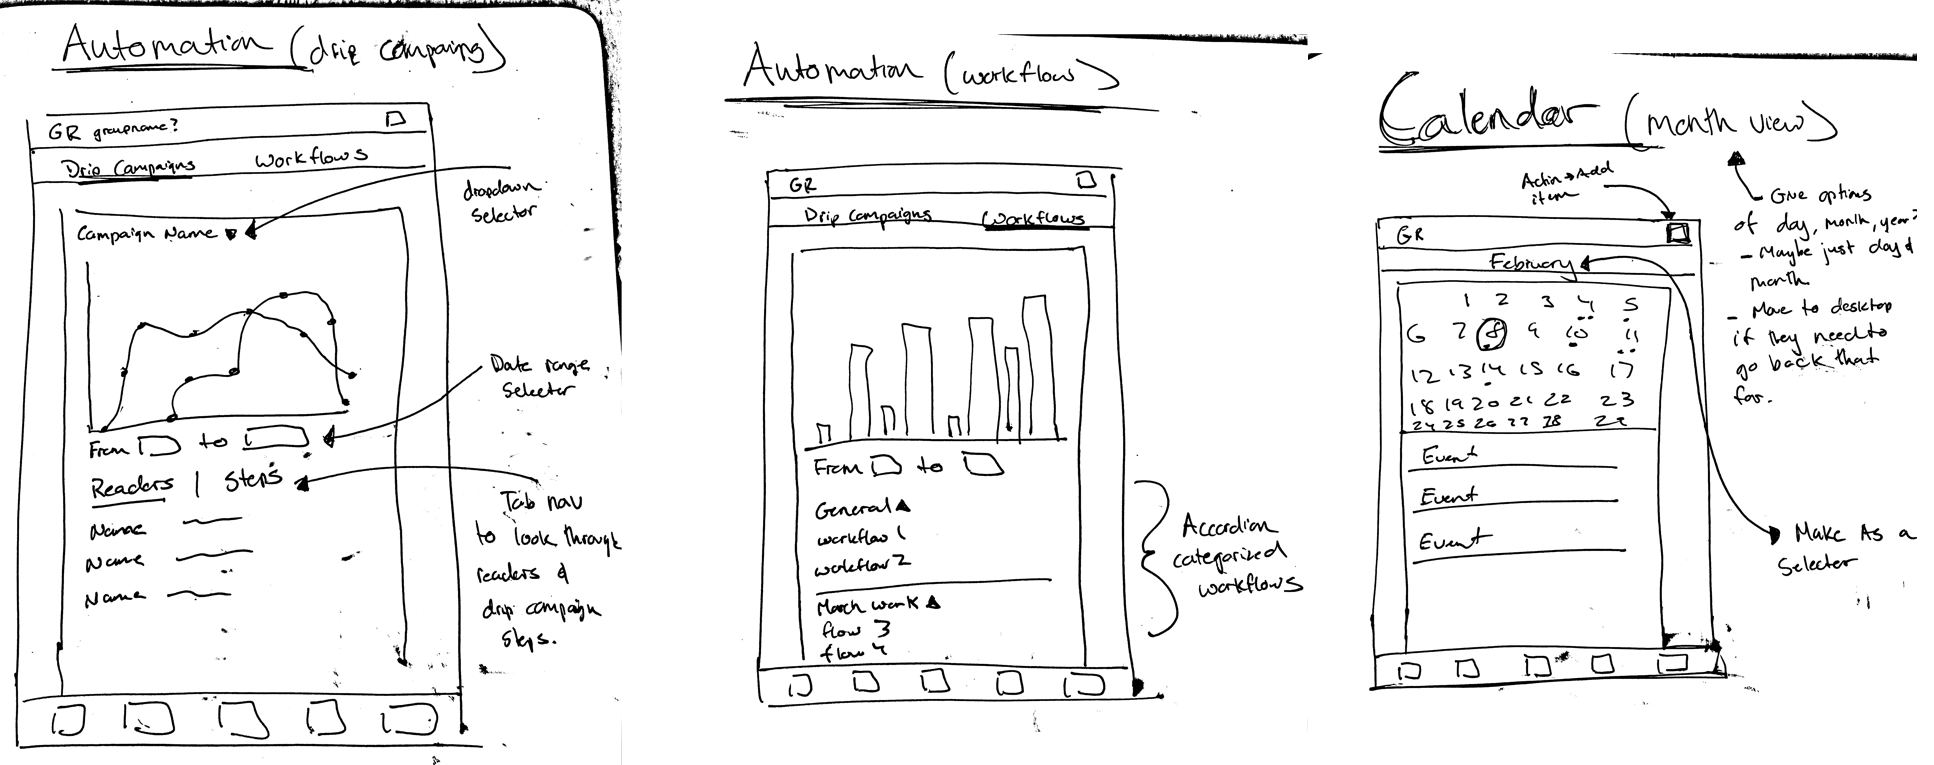 Automation (drip campaings)
GR groupname?
Drip Campaigns Workflows
dropdown
selector
Campaign Name
Date range
Selector
From to
Readers | Steps
Tab nav
to look through
readers &
drip campaign
steps.
Name
Name
Name
Automation (workflow)
GR
Drip Campaigns Workflows
From to
General
workflow 1
workflow 2
March work
flow 3
flow 4
Accordian
categorized
workflows
Calendar (month view)
Action → Add
item
- Give options
of day, month, year?
- Maybe just day &
month
- Move to desktop
if they need to
go back that
far.
GR
February
1 2 3 4 5
6 7 8 9 10 11
12 13 14 15 16 17
18 19 20 21 22 23
24 25 26 27 28 29
Event
Event
Event
Make As a
Selector